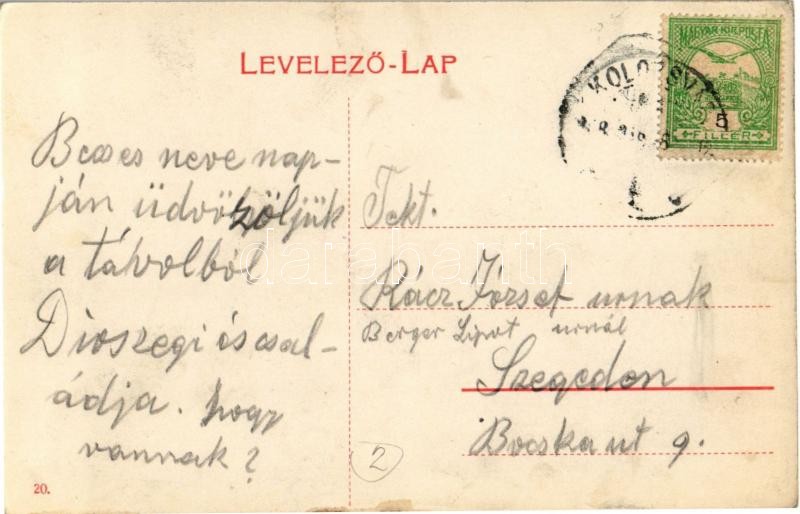 LEVELEZŐ-LAP
MAGYAR KIR. POSTA
5
FILLÉR
KOLOZSVÁR
Becses neve nap-
ján üdvözöljük
a távolból
Dioszegi és csal-
ádja. hogy
vannak?
Tekt.
Rácz József urnak
Berger Lipot urnál
Szegeden
Bocskai ut 9.
2
20.
darabanth